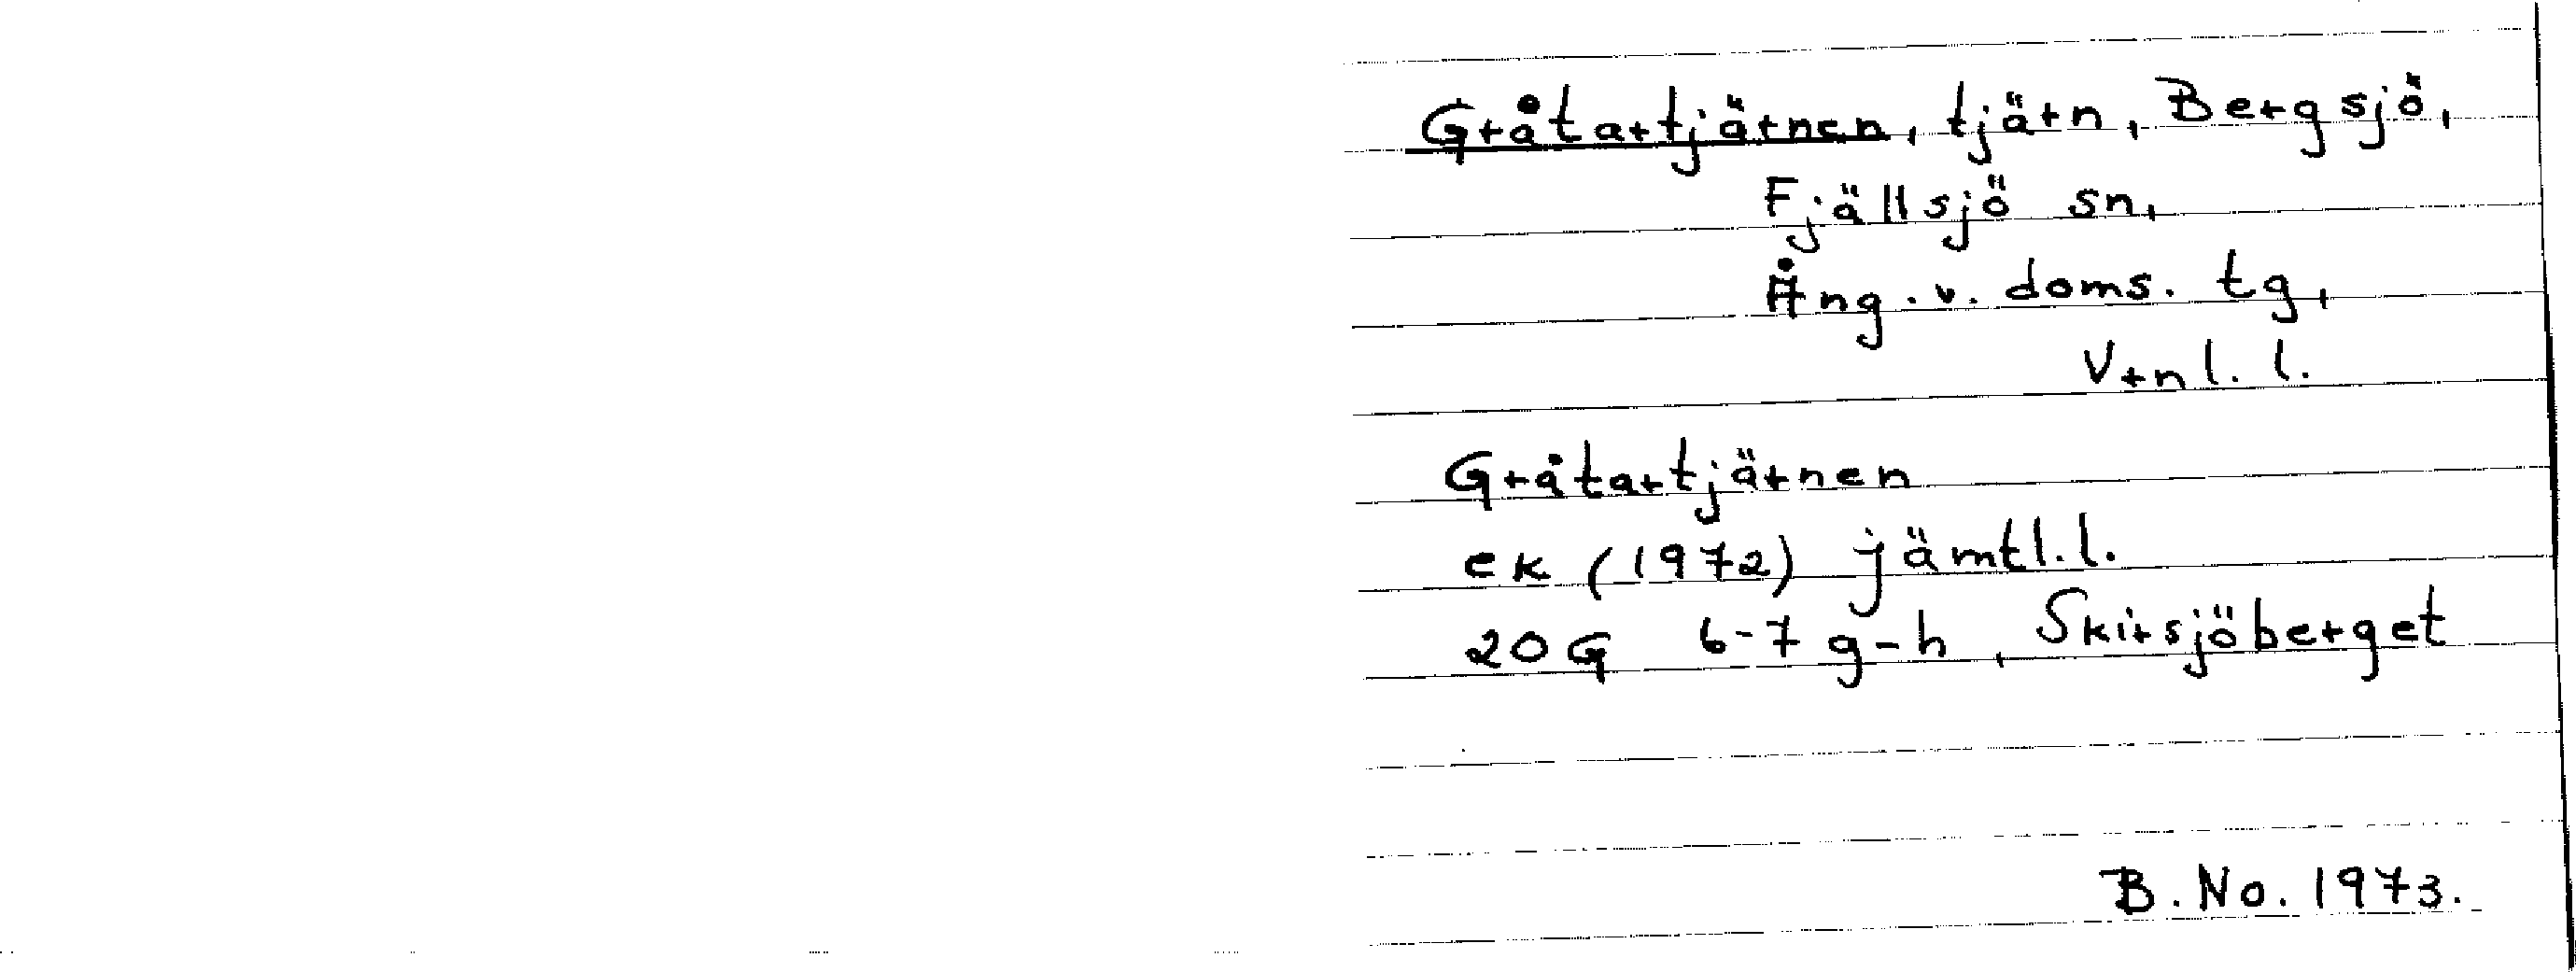 Gråtartjärnen, tjärn, Bergsjö,
Fjällsjö sn,
Ång. v. doms. tg,
Vrnl. l.
Gråtartjärnen
ek (1972) jämtl. l.
20G 6-7 g-h, Skirsjöberget
B. No. 1973.